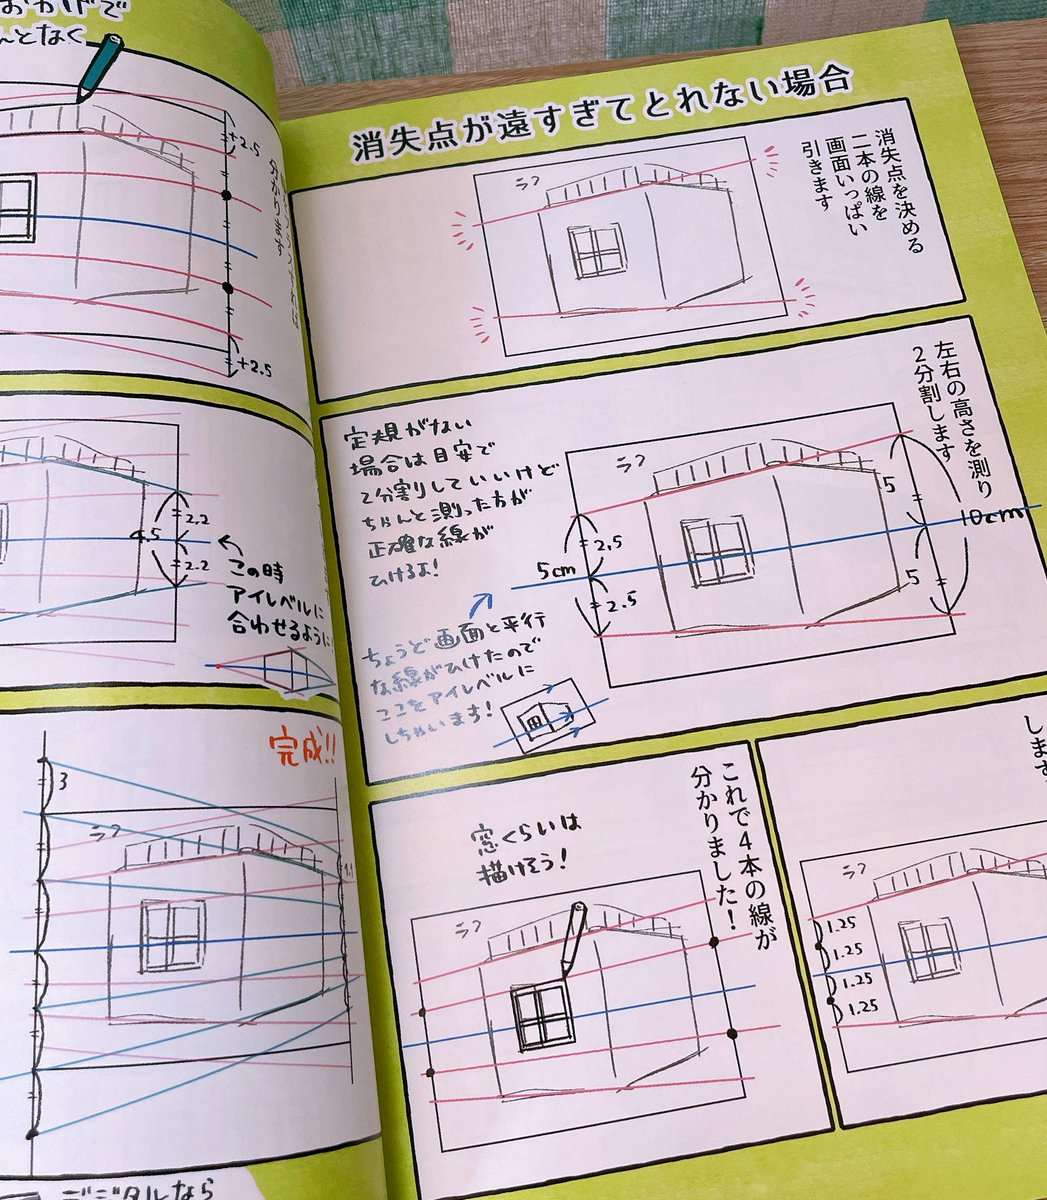 消失点が遠すぎてとれない場合
消失点を決める
二本の線を
画面いっぱい
引きます
ラフ
左右の高さを測り
2分割します
定規がない
場合は目安で
2分割りしていいけど
ちゃんと測った方が
正確な線が
ひけるよ!
ラフ
5cm
2.5
2.5
5
5
10cm
ちょうど画面と平行
な線がひけたので
ここをアイレベルに
しちゃいます!
します
ラフ
1.25
1.25
1.25
1.25
これで4本の線が
分かりました!
窓くらいは
描けそう!
ラフ
おかげで
んとなく
+2.5
分かります
+2.5
2.2
4.5
2.2
この時
アイレベルに
合わせるように
完成!!
3
ラフ
デジタルなら